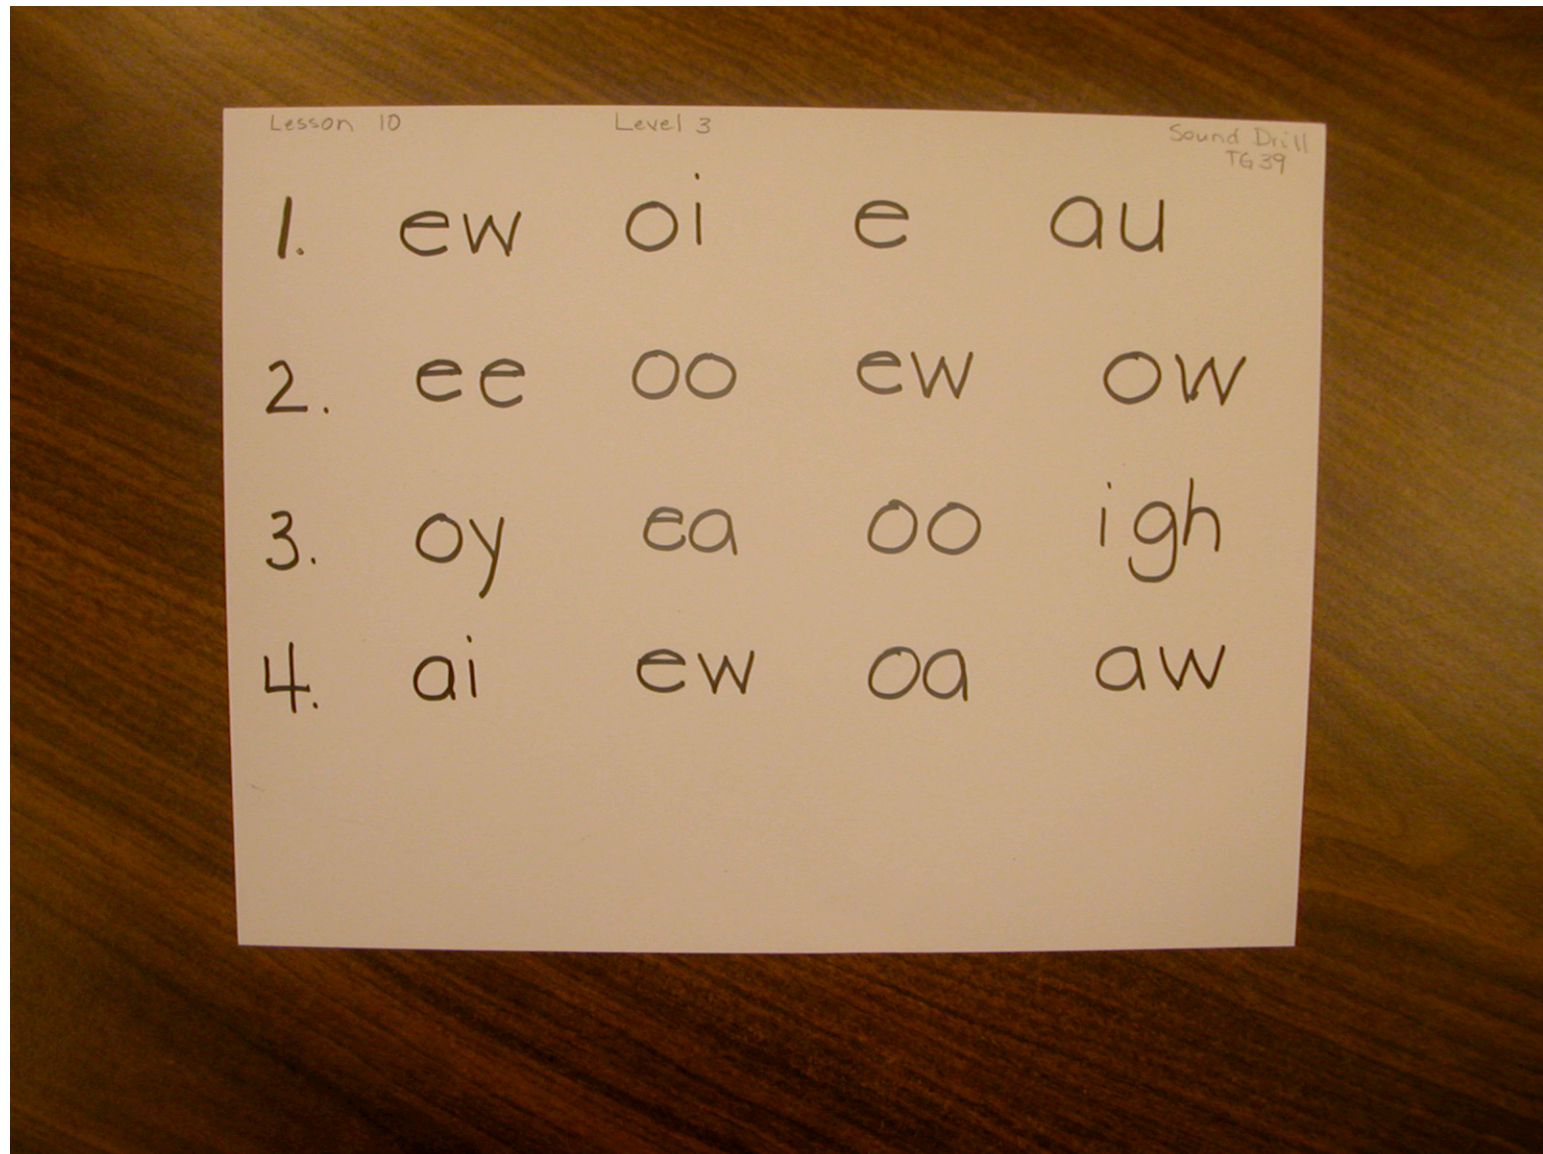 Lesson 10 Level 3 Sound Drill
TG 39
1. ew oi e au
2. ee oo ew ow
3. oy ea oo igh
4. ai ew oa aw